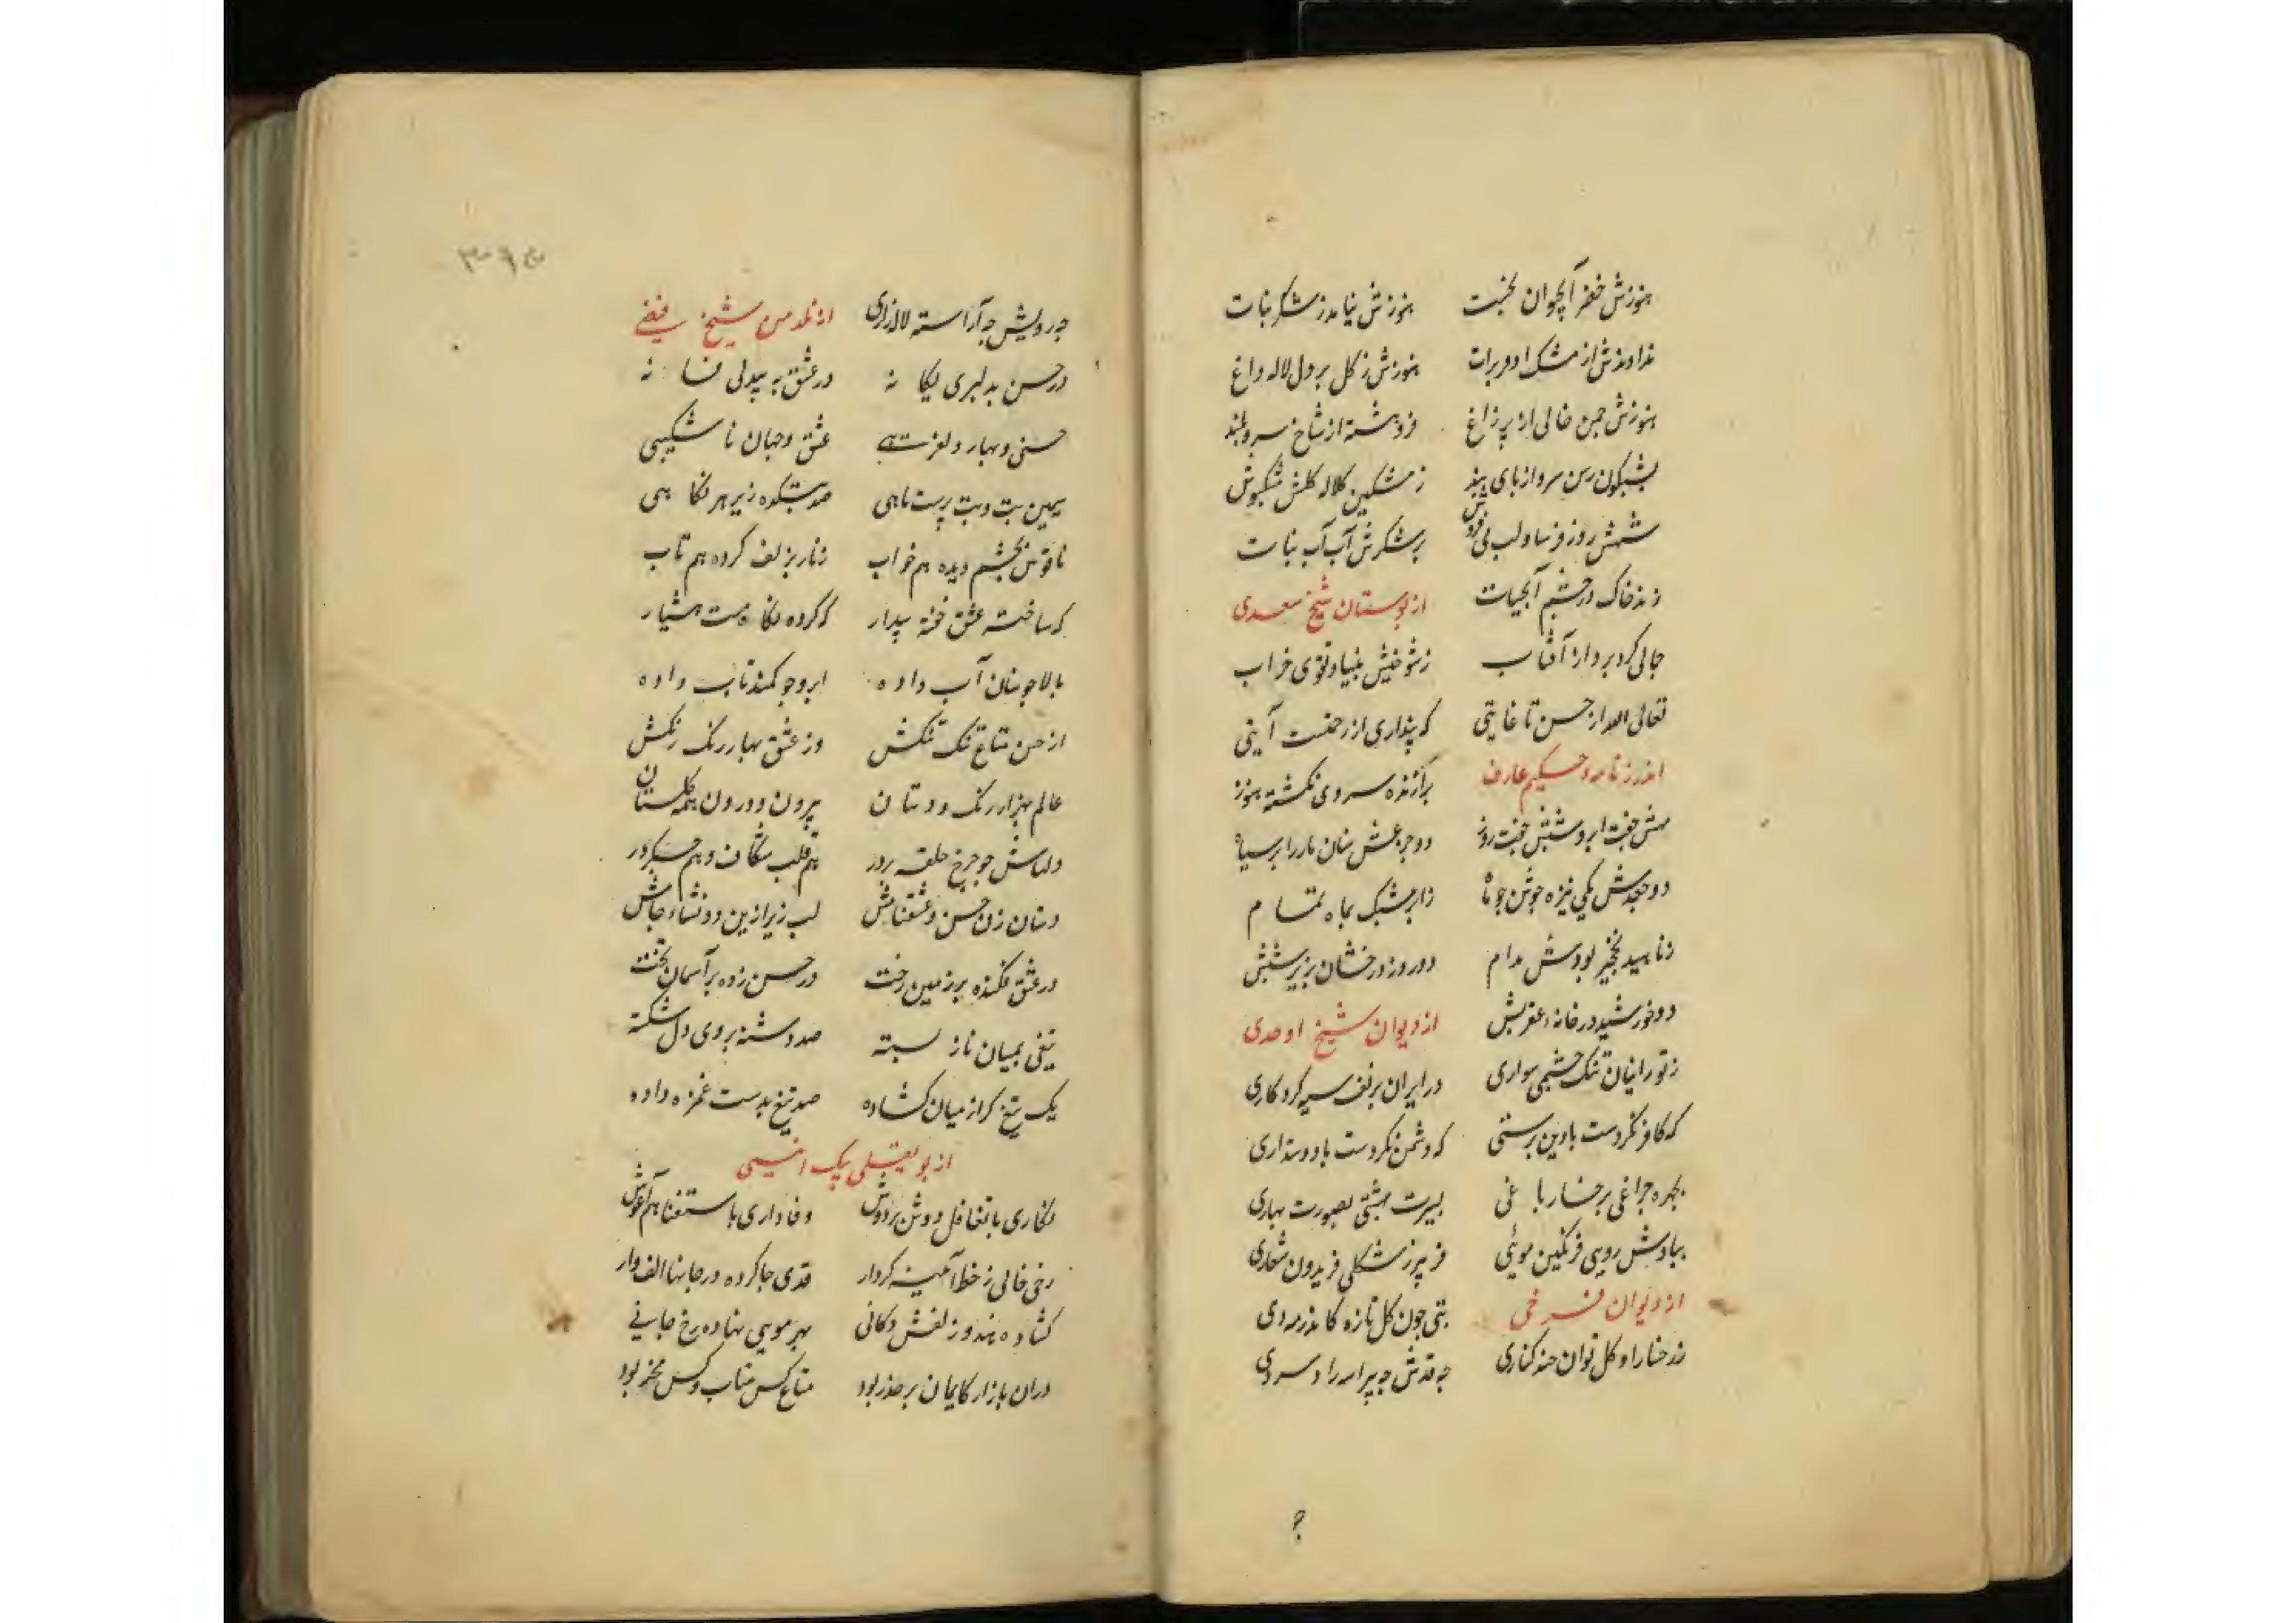 هنوزش خضر آبحیوان نجست هنوزش نیامد ز شکر نبات
نداوندش از مشک اذو برات هنوزش ز کل بر دل لاله داغ
هنوزش چمن خالی از پر زاغ فروهشته از شاخ سرو بلند
بشبکون رسن سرو را پای بند ز مشکین کلاله کلش مشکپوش
شمش روز فرسا و لب می فروش پر شکرش آب آب نبات
زند خاک در چشم آبحیات از بوستان شیخ سعدی
جمالی کرو برد از آفتاب ز شوخیش بنیاد تقوی خراب
تعالی الله از حسن تا غایتی که پنداری از رحمتست آیتی
اندرزنامه حکیم عارف برآزنده سروی نکشته هنوز
مهش جفت ابرو شبش جفت روز
دو جعدش یکی نیزه جوشن
ز ناهید نخچیر بودش مدام دو روز درخشان بزیر شبش
دو خورشید در خانه عقربش از دیوان شیخ اوحدی
ز تورانیان تنک چشمی سواری در ایران بزلف سیه کرد کاری
که کافر نکردست با دین پرستی که دشمن نکردست با دوستداری
بچهره چراغی برخسار باغی بسیرت بهشتی بصورت بهاری
روسی فرنکین موئی شکلی فریدون شعاری
از دیوان فرخی بتی چون کل تازه کاندر مه دی
ز رخسار او کل توان چند کناری چه قدش چه پیراسته زاد سروی
چه
۳۰۶۵
چه رویش چه آراسته لاله‌زاری از نلدمن شیخ فیضی
در حسن بدلبری یکانه در عشق به بیدلی فسانه
حسنی و بهار دلفریبی عشق و جهان ناشکیبی
سیمین بت و بت پرست ماهی صد بتکده زیر هر نکاهی
ناقوس بچشم دیده هم خواب زنار بزلف کرده هم تاب
که ساخته عشق خفته بیدار که کرده نکاه مست هشیار
بالا چو سنان آب داده ابرو چو کمند تاب داده
از حسن متاع تنک تنکش وز عشق بهار رنک رنکش
عالم بهزار رنک و دستان بیرون و درون همه کلستان
چو چرخ حلقه هم قلب شکاف و هم
دستان زن حسن و عشق نامش لب ریز ازین دو نشاء جامش
در عشق فکنده بر زمین رخت در حسن زده بر آسمان تخت
تیغی بمیان ناز بسته صد دشنه بروی دل شکسته
یک تیغ کر از میان کشاده صد تیغ بدست غمزه داده
از یولقلی بیک انیسی
نکاری با تغافل دوش بر دوش وفاداری با استغنا هم آغوش
رخی خالی ز خط آئینه کردار قدی جا کرده در جانها الف وار
کشاده هندو زلفش دکانی بهر مویی نهاده رخ
دران بازار کایمان بر حذر بود متاع کس متاب و کس مخر بود